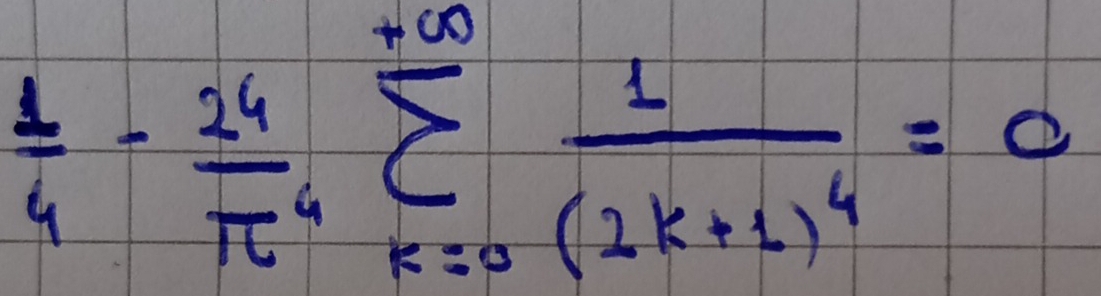 1/4 - 24/π^4 \sum_{k=0}^{+∞} 1/(2k+1)^4 = 0